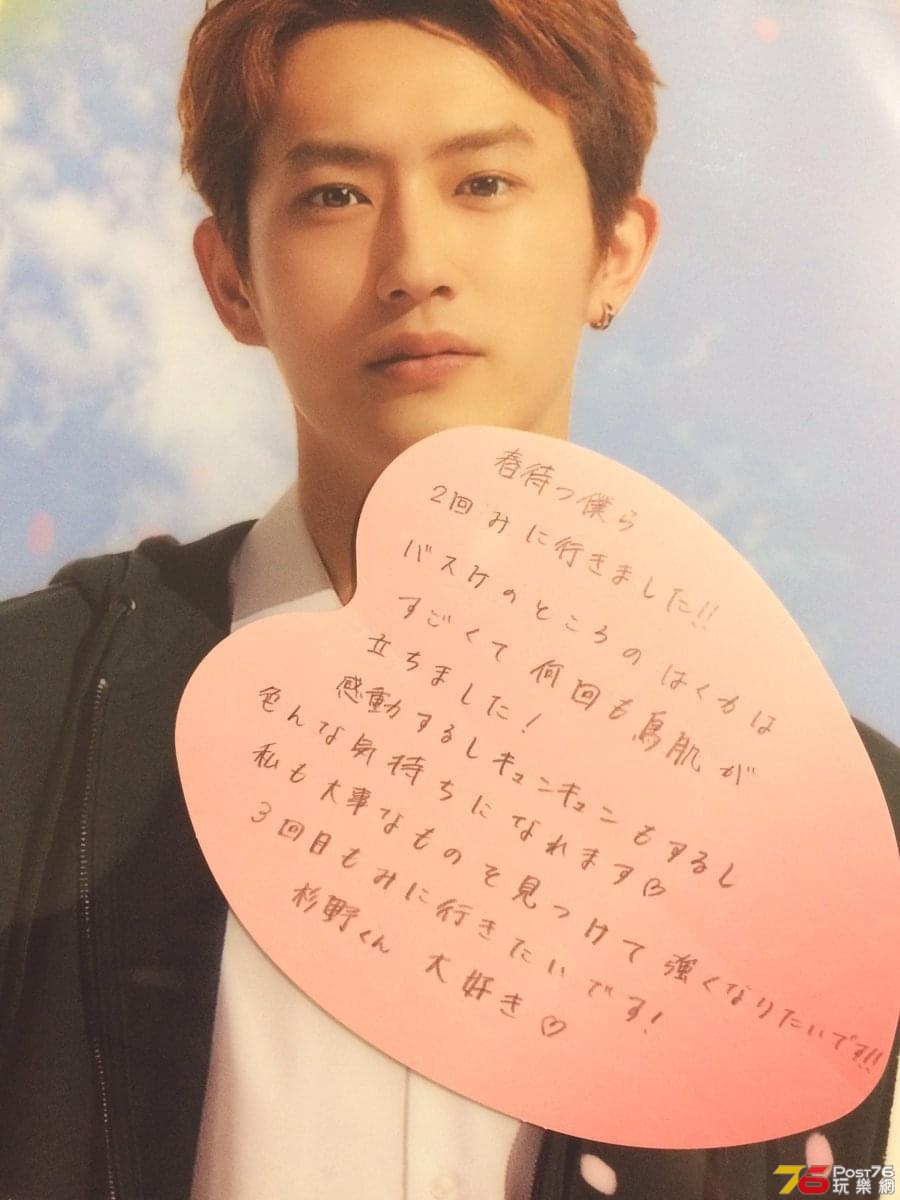 春待つ僕ら
2回みに行きました!!
バスケのところのはく力は
すごくて何回も鳥肌が
立ちました!
感動するしキュンキュンもするし
色んな気持ちになれます♡
私も大事なものを見つけて強くなりたいです!!
3回目もみに行きたいです!
杉野くん 大好き♡
76 POST76
玩樂網